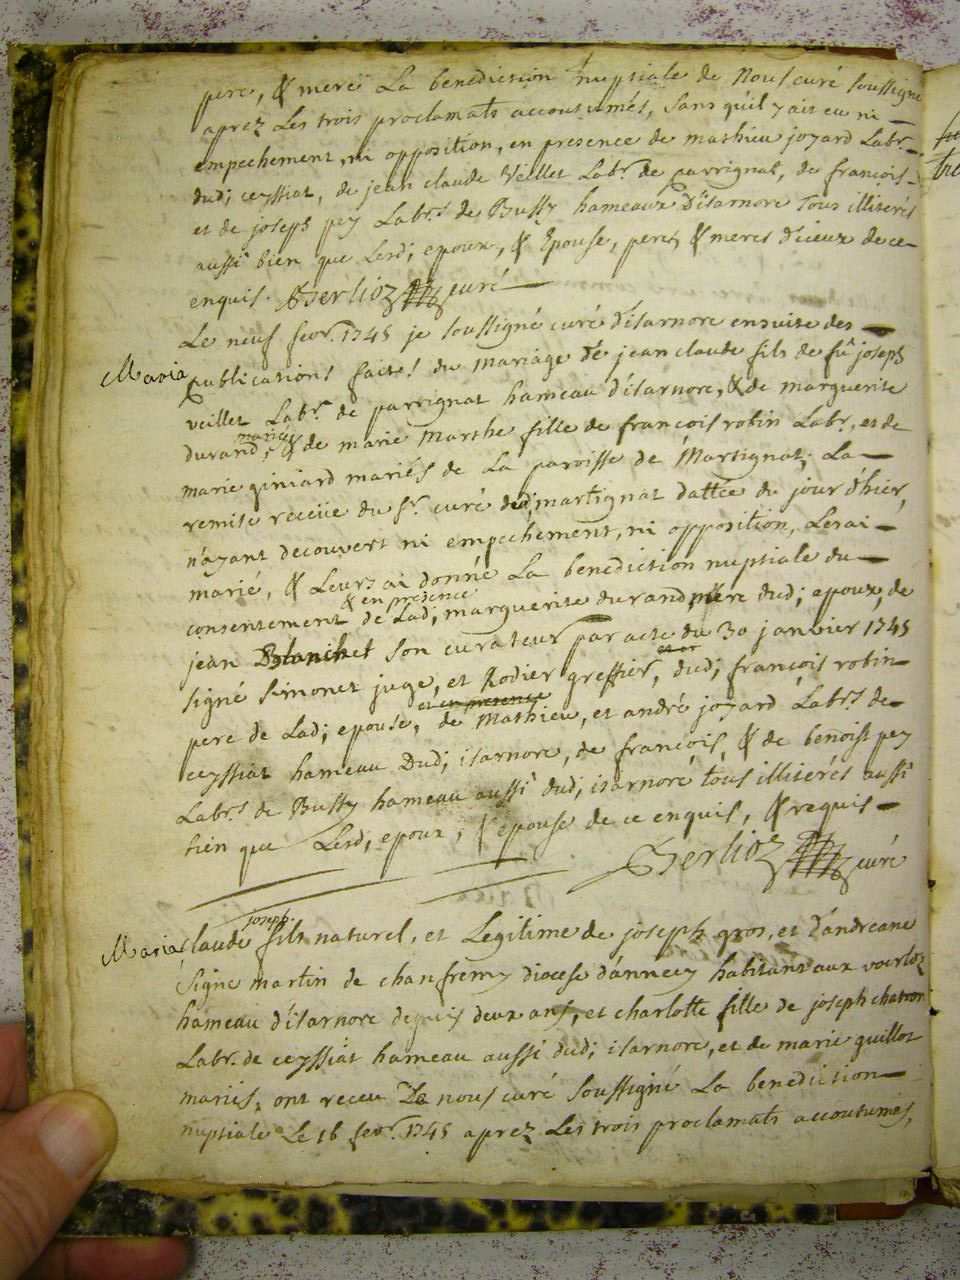 pere, & mere La benediction nuptiale de Nous curé soussigné
aprez Les trois proclamats accoutumés, sans qu'il y ait eu ni
empechement, ni opposition, en presence de mathieu joyard Labr.
dud; ceyssiat, de jean claude Veillet Labr. de pavrignat, de françois
et de joseph pey Labrs. de Bussy hameaux d'isarnore Tous illiterés
aussi bien que Lesd; epoux, & Epouse, peres & meres d'iceux de ce
enquis. Berlioz curé
Le neuf fevr. 1745 je soussigné curé d'isarnore ensuite des
Maria
publications faites du mariage de jean claude fils de fû joseph
veillet Labr. de pavrignat hameau d'isarnore, & de marguerite
mariés
durand, & de marie Marthe fille de françois robin Labr, et de
marie giniard mariés de La paroisse de Martignat; La
remise receüe du sr. curé dud; martignat dattée du jour d'hier,
n'ayant decouvert ni empechement, ni opposition, Les ai
marié, & Leurs ai donné La benediction nuptiale du
& en presence
consentement de Lad; marguerite durand mere dud; epoux, de
jean Blanchet son curateur par acte du 30 janvier 1745
signé Simonet juge, et Rodier greffier, dud; françois robin
et en presence
pere de Lad; epouse, de Mathieu, et andré joyard Labrs. de
ceyssiat hameau Dud; isarnore, de françois, & de benoist pey
Labrs. de Bussy hameau aussi dud; isarnore tous illiterés aussi
bien que Lesd, epoux, & epouse de ce enquis, & requis
Berlioz curé
joseph
Maria
Claude fils naturel, et Legitime de joseph gros, et d'andreane
Signe martin de chanfremy diocese d'annecy habitans aux voerloz
hameau d'isarnore depuis deux ans, et charlotte fille de joseph chatron
Labr. de ceyssiat hameau aussi dud; isarnore, et de marie guillot
mariés, ont receu De nous curé soussigné La benediction
nuptiale Le 16 fevr. 1745 aprez Les trois proclamats accoutumés,